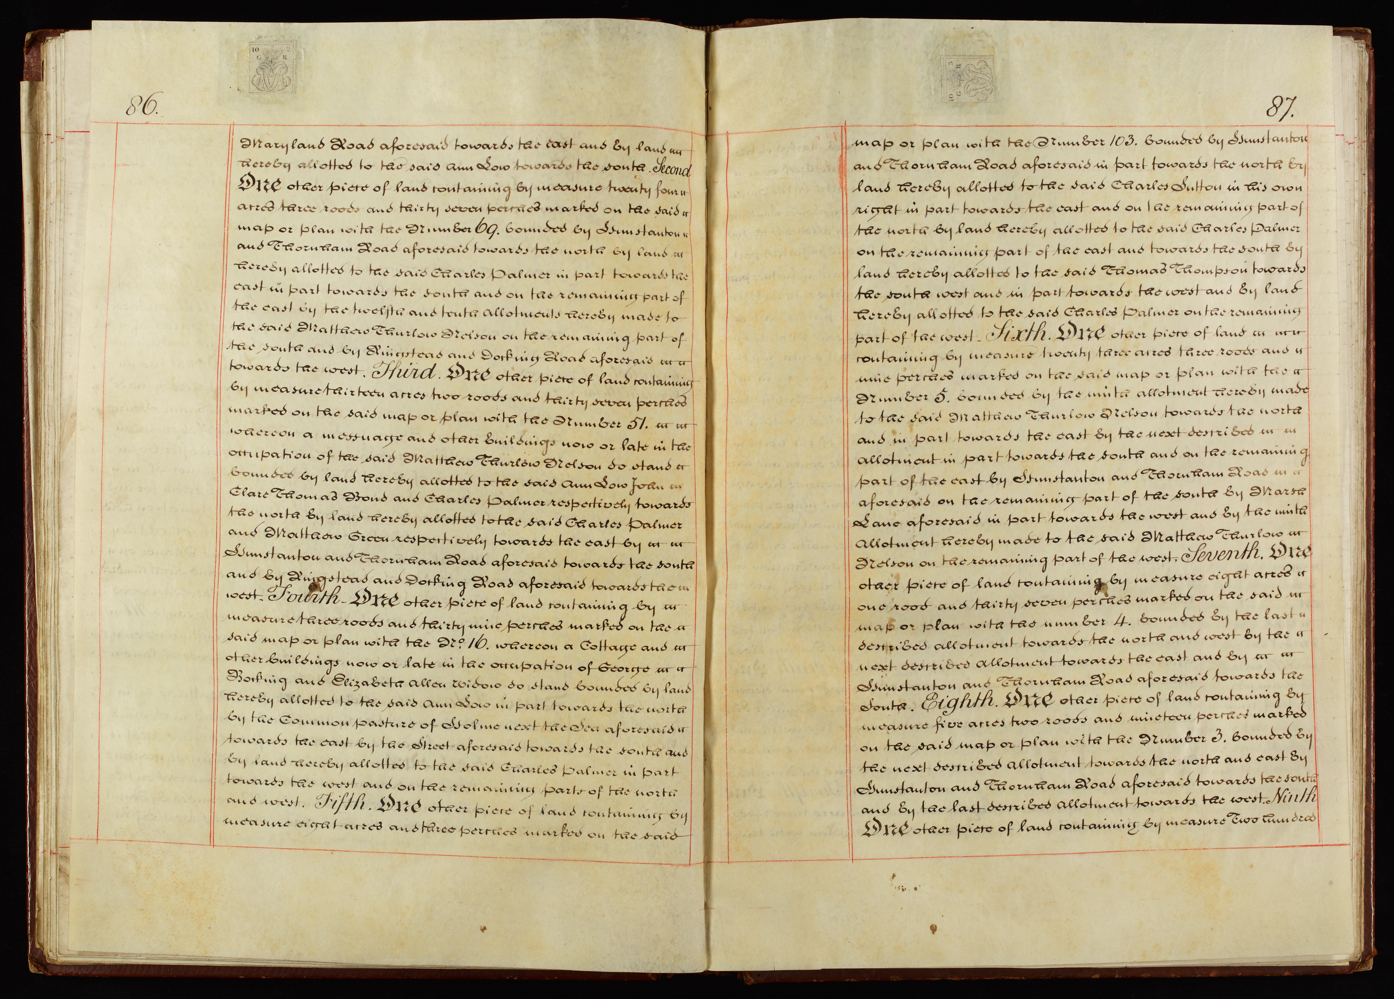 86.
Maryland Road aforesaid towards the east and by land
hereby allotted to the said Ann Low towards the south. Second
One other piece of land containing by measure twenty four
acres three roods and thirty seven perches marked on the said
map or plan with the Number 69. bounded by Hunstanton
and Thornham Road aforesaid towards the north by land
hereby allotted to the said Charles Palmer in part towards the
east in part towards the south and on the remaining part of
the east by the twelfth and tenth allotments hereby made to
the said Matthew Thurlow Nelson on the remaining part of
the south and by Ringstead and Docking Road aforesaid
towards the west. Third. One other piece of land containing
by measure thirteen acres two roods and thirty seven perches
marked on the said map or plan with the Number 51.
whereon a messuage and other buildings now or late in the
occupation of the said Matthew Thurlow Nelson do stand
bounded by land hereby allotted to the said Ann Low John
Clare Thomas Bond and Charles Palmer respectively towards
the north by land hereby allotted to the said Charles Palmer
and Matthew Green respectively towards the east by
Hunstanton and Thornham Road aforesaid towards the south
and by Ringstead and Docking Road aforesaid towards the
west. Fourth. One other piece of land containing by
measure three roods and thirty nine perches marked on the
said map or plan with the No. 16. whereon a Cottage and
other buildings now or late in the occupation of George
Bocking and Elizabeth Allen widow do stand bounded by land
hereby allotted to the said Ann Low in part towards the north
by the Common pasture of Holme next the Sea aforesaid
towards the east by the Street aforesaid towards the south and
by land hereby allotted to the said Charles Palmer in part
towards the west and on the remaining parts of the north
and west. Fifth. One other piece of land containing by
measure eight acres and three perches marked on the said
87.
map or plan with the Number 103. bounded by Hunstanton
and Thornham Road aforesaid in part towards the north by
land hereby allotted to the said Charles Sutton in his own
right in part towards the east and on the remaining part of
the north by land hereby allotted to the said Charles Palmer
on the remaining part of the east and towards the south by
land hereby allotted to the said Thomas Thompson towards
the south west and in part towards the west and by land
hereby allotted to the said Charles Palmer on the remaining
part of the west. Sixth. One other piece of land
containing by measure twenty three acres three roods and
nine perches marked on the said map or plan with the
Number 5. bounded by the ninth allotment hereby made
to the said Matthew Thurlow Nelson towards the north
and in part towards the east by the next described
allotment in part towards the south and on the remaining
part of the east by Hunstanton and Thornham Road
aforesaid on the remaining part of the south by Marsh
Lane aforesaid in part towards the west and by the ninth
Allotment hereby made to the said Matthew Thurlow
Nelson on the remaining part of the west. Seventh. One
other piece of land containing by measure eight acres
one rood and thirty seven perches marked on the said
map or plan with the number 4. bounded by the last
described allotment towards the north and west by the
next described Allotment towards the east and by
Hunstanton and Thornham Road aforesaid towards the
South. Eighth. One other piece of land containing by
measure five acres two roods and nineteen perches marked
on the said map or plan with the Number 3. bounded by
the next described Allotment towards the north and east by
Hunstanton and Thornham Road aforesaid towards the south
and by the last described allotment towards the west. Ninth
One other piece of land containing by measure Two hundred